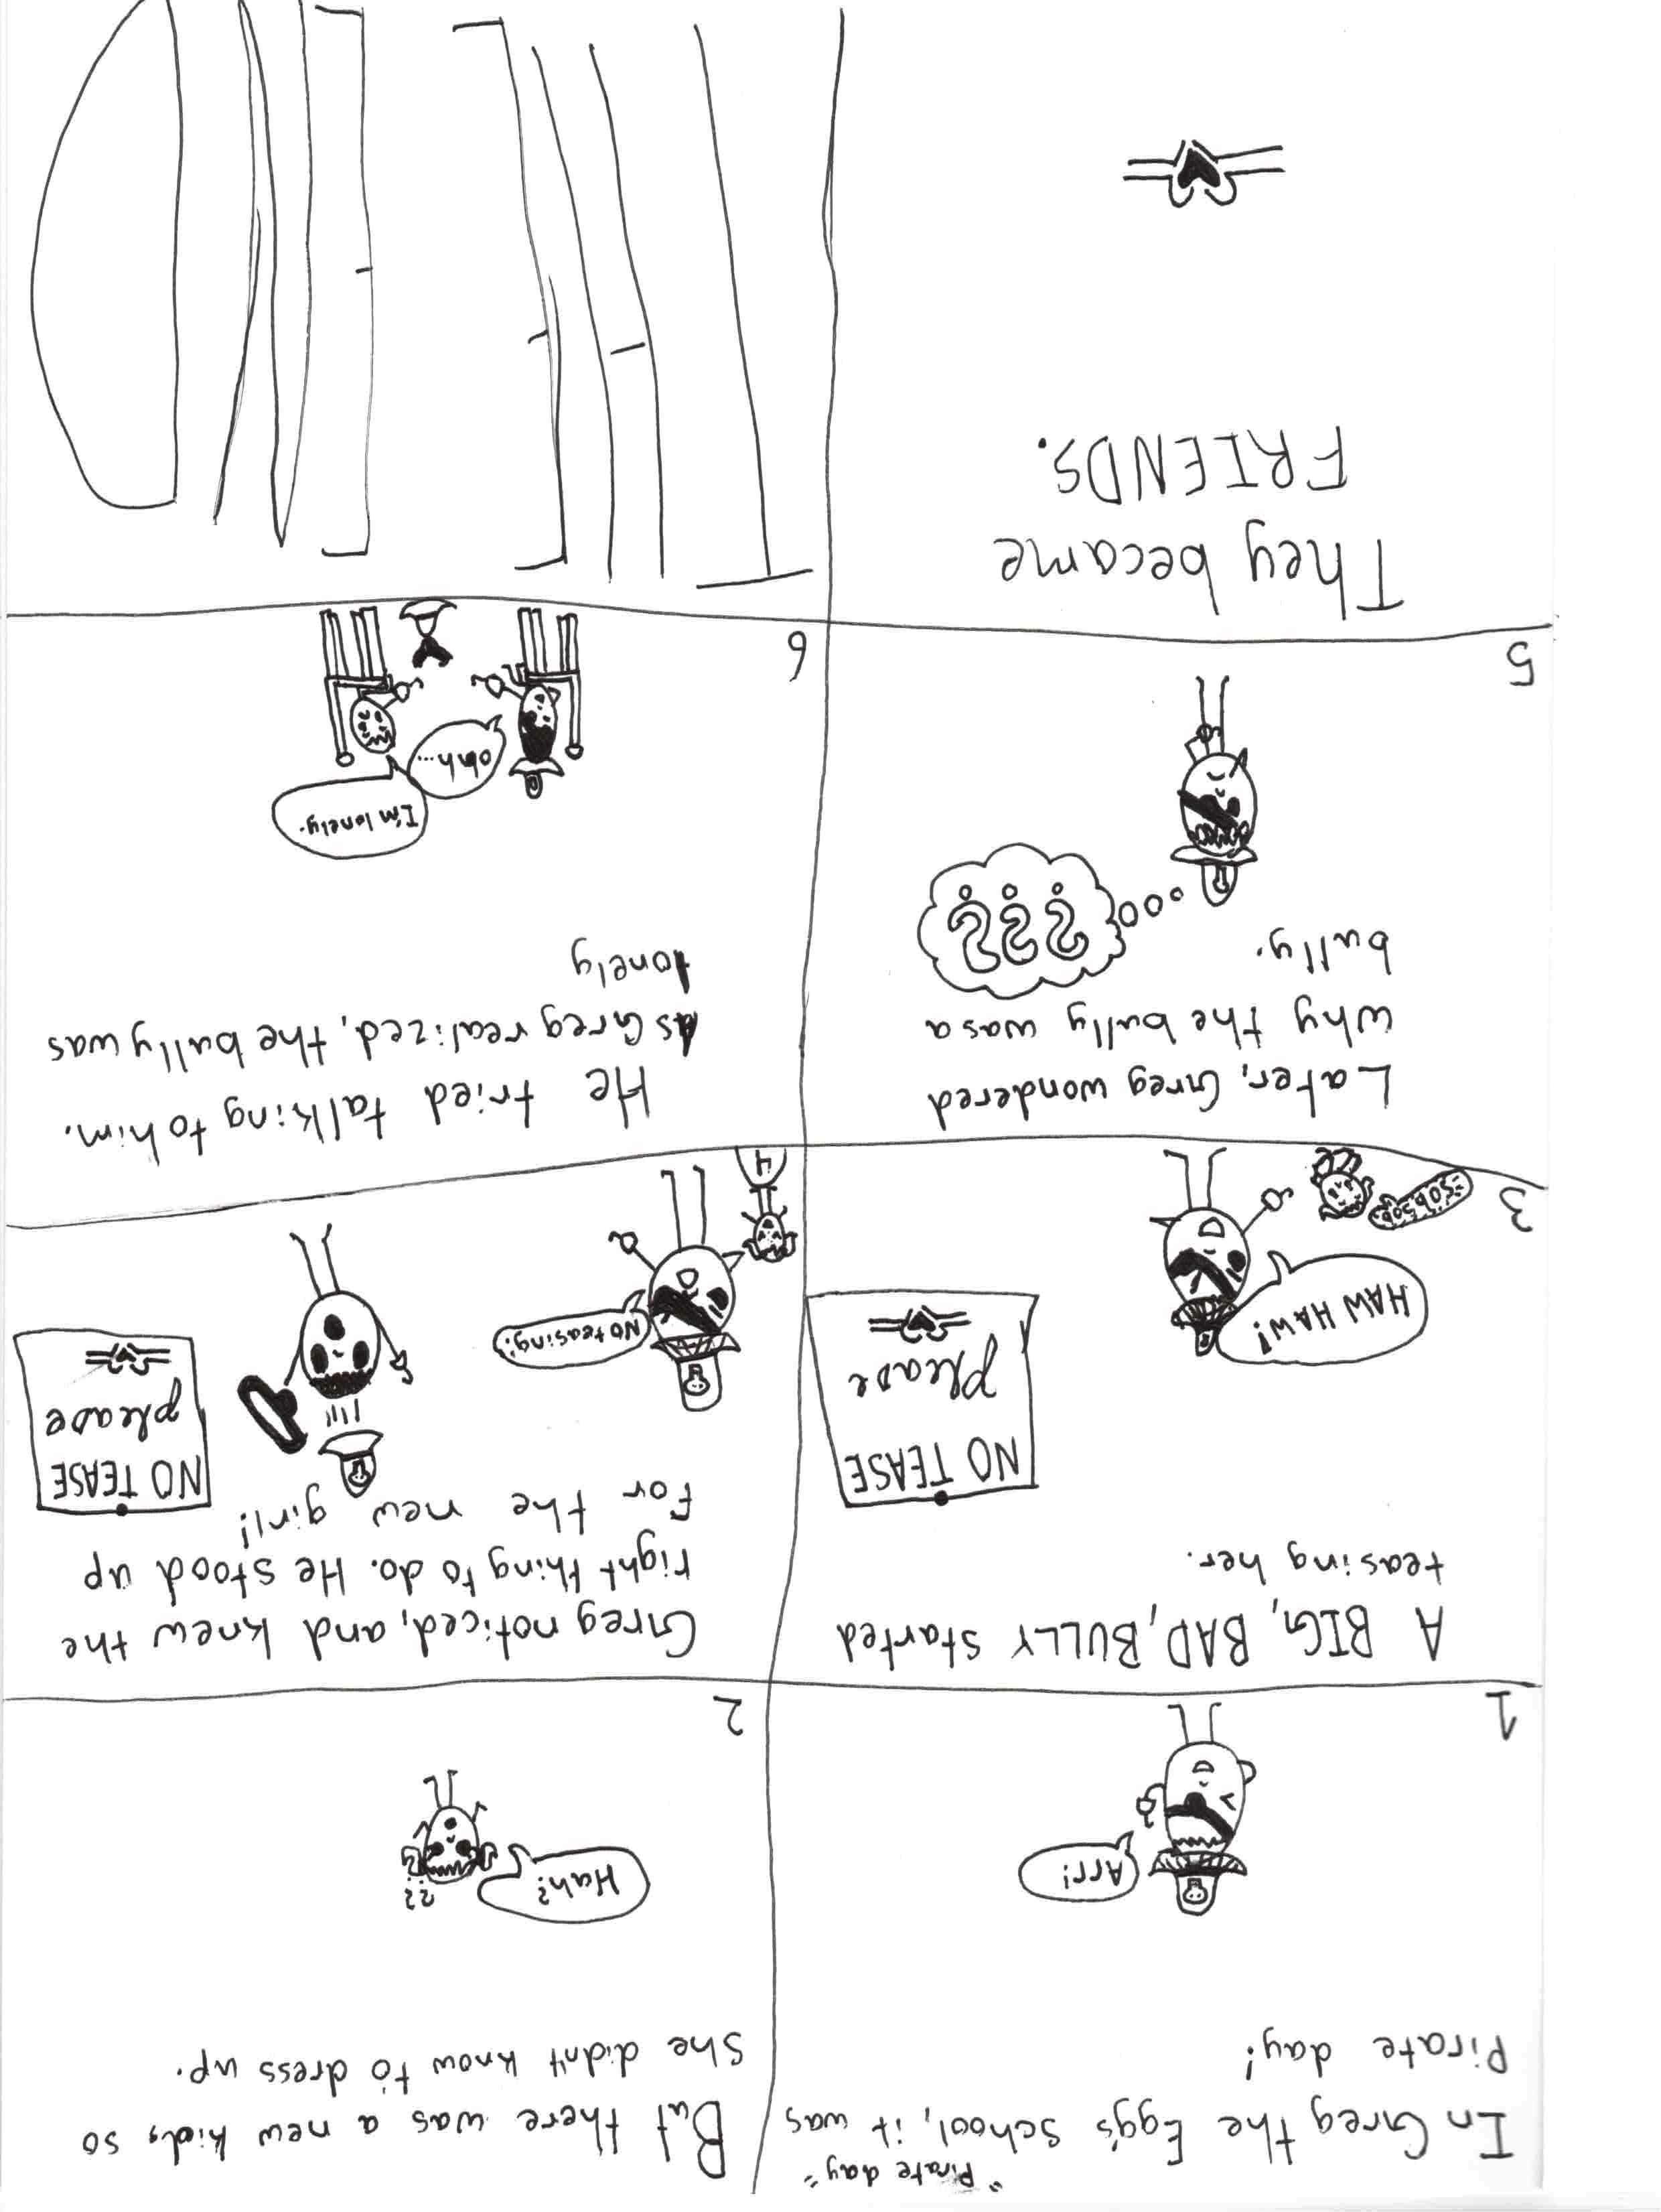 "Pirate day"
In Greg the Egg's school, it was
Pirate day!
Arr!
1
But there was a new kid, so
She didn't know to dress up.
Huh?
??
2
A BIG, BAD, BULLY started
teasing her.
NO TEASE
please
HAW HAW!
SOB SOB
3
Greg noticed, and knew the
right thing to do. He stood up
For the new girl!
NO TEASE
please
NO teasing!
4
Later, Greg wondered
why the bully was a
bully.
???
5
He tried talking to him.
As Greg realized, the bully was
lonely
I'm lonely.
ohh...
6
They became
FRIENDS.